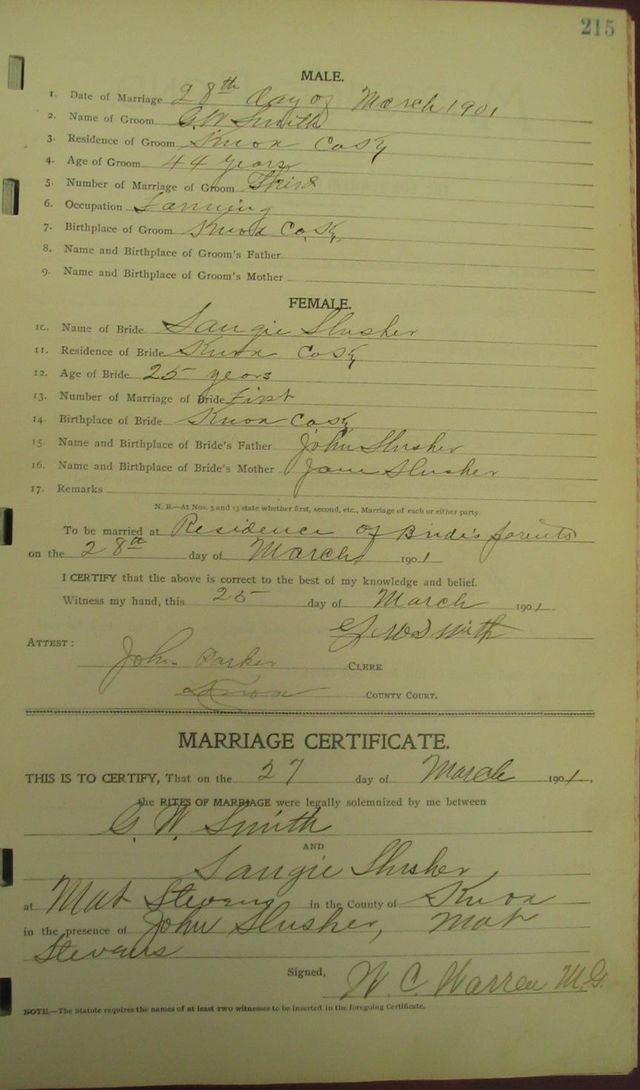 215
MALE.
1. Date of Marriage 28th day of March 1901
2. Name of Groom G.W. Smith
3. Residence of Groom Knox Co Ky
4. Age of Groom 44 years
5. Number of Marriage of Groom Third
6. Occupation Farming
7. Birthplace of Groom Knox Co. Ky.
8. Name and Birthplace of Groom's Father
9. Name and Birthplace of Groom's Mother
FEMALE.
10. Name of Bride Slusher
11. Residence of Bride Knox Co Ky
12. Age of Bride 25 years
13. Number of Marriage of Bride First
14. Birthplace of Bride Knox Co Ky
15. Name and Birthplace of Bride's Father John Slusher
16. Name and Birthplace of Bride's Mother Jane Slusher
17. Remarks
N. B.—At Nos. 5 and 13 state whether first, second, etc., Marriage of each or either party.
To be married at Residence of Bride's parents
on the 28th day of March 1901
I CERTIFY that the above is correct to the best of my knowledge and belief.
Witness my hand, this 25 day of March 1901
G.W. Smith
ATTEST: John Parker CLERK
Knox COUNTY COURT.
MARRIAGE CERTIFICATE.
THIS IS TO CERTIFY, That on the 27 day of March 1901.
the RITES OF MARRIAGE were legally solemnized by me between
G. W. Smith
AND
Slusher
at Mat Stevens in the County of Knox
in the presence of John Slusher, Mat
Stevens
Signed, W. C. Warren M.G.
NOTE.—The Statute requires the names of at least TWO witnesses to be inserted in the foregoing Certificate.